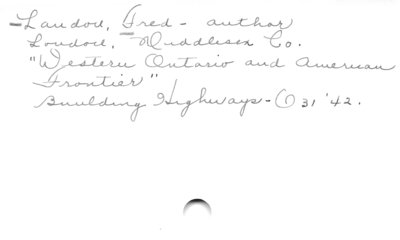 Landon, Fred - author
London, Middlesex Co.
"Western Ontario and American
Frontier"
Building Highways - O 31 '42.